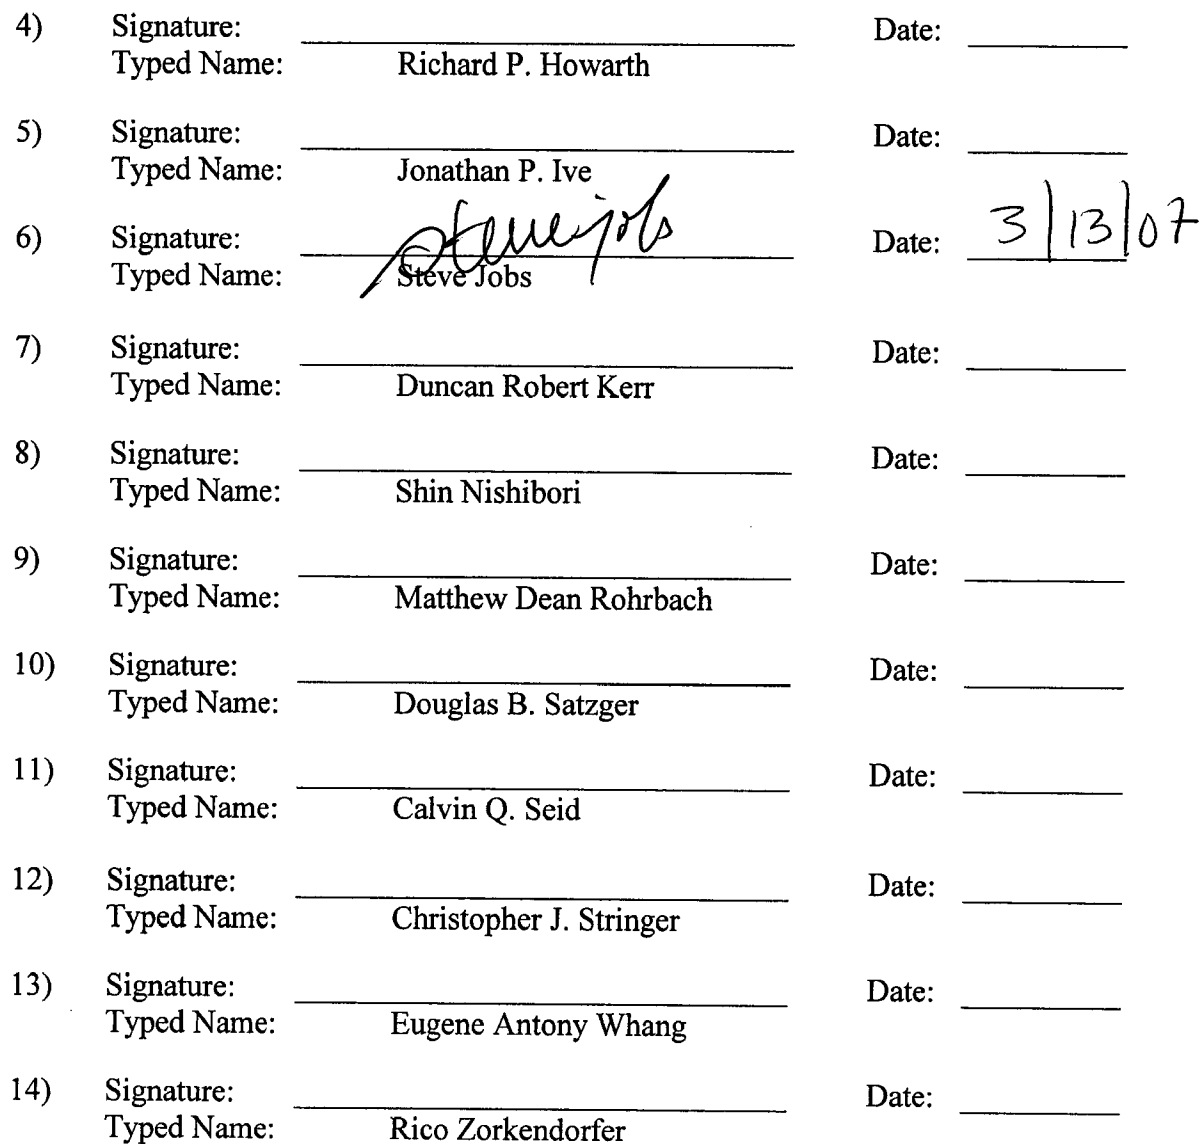 4) Signature: Date:
Typed Name: Richard P. Howarth
5) Signature: Date:
Typed Name: Jonathan P. Ive
6) Signature: steve jobs Date: 3/13/07
Typed Name: Steve Jobs
7) Signature: Date:
Typed Name: Duncan Robert Kerr
8) Signature: Date:
Typed Name: Shin Nishibori
9) Signature: Date:
Typed Name: Matthew Dean Rohrbach
10) Signature: Date:
Typed Name: Douglas B. Satzger
11) Signature: Date:
Typed Name: Calvin Q. Seid
12) Signature: Date:
Typed Name: Christopher J. Stringer
13) Signature: Date:
Typed Name: Eugene Antony Whang
14) Signature: Date:
Typed Name: Rico Zorkendorfer